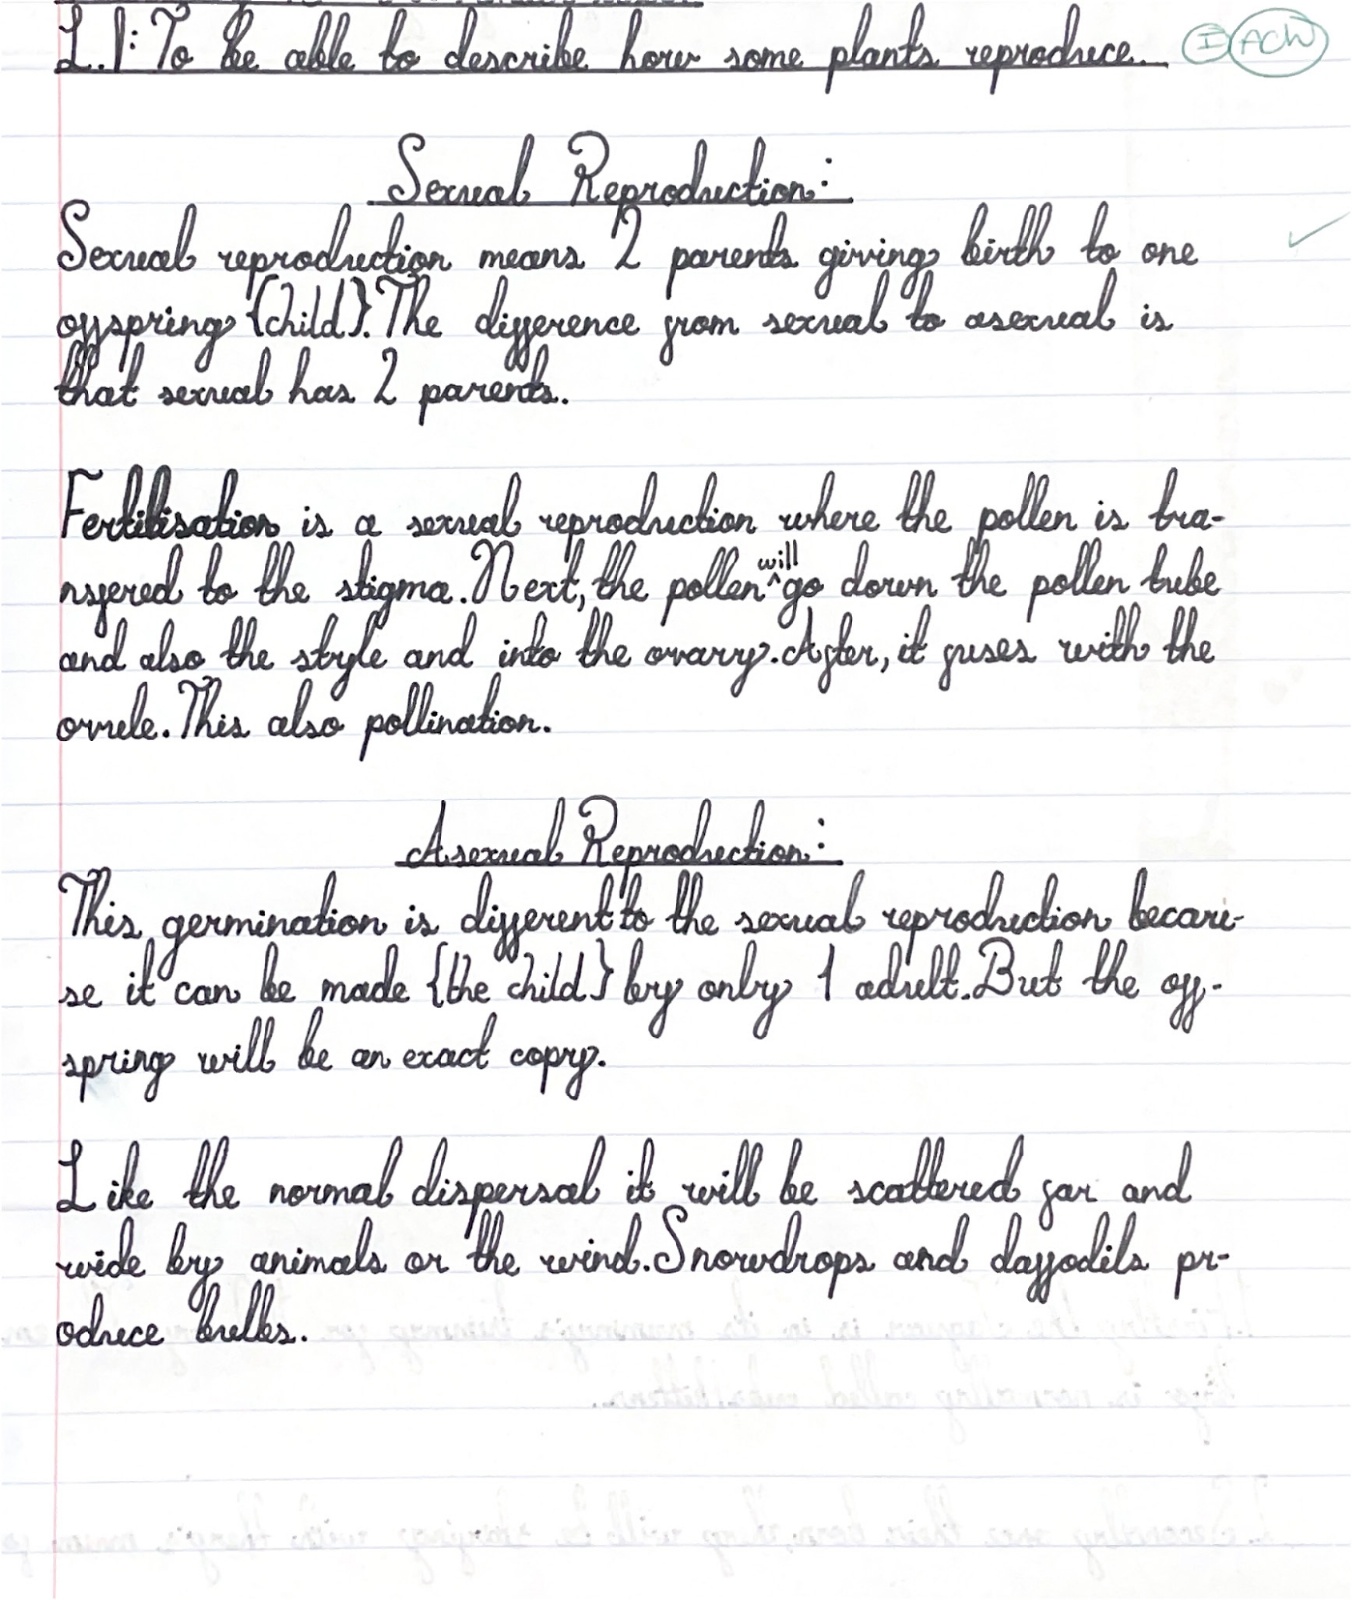 L.I: To be able to describe how some plants reproduce. I ACW
Sexual Reproduction:
Sexual reproduction means 2 parents giving birth to one
offspring {child}. The difference from sexual to asexual is
that sexual has 2 parents.
Fertilisation is a sexual reproduction where the pollen is tra-
nsfered to the stigma. Next, the pollen ^will go down the pollen tube
and also the style and into the ovary. After, it fuses with the
ovule. This also pollination.
Asexual Reproduction:
This germination is different to the sexual reproduction becau-
se it can be made {the child} by only 1 adult. But the off-
spring will be an exact copy.
Like the normal dispersal it will be scattered far and
wide by animals or the wind. Snowdrops and daffodils pr-
oduce bulbs.